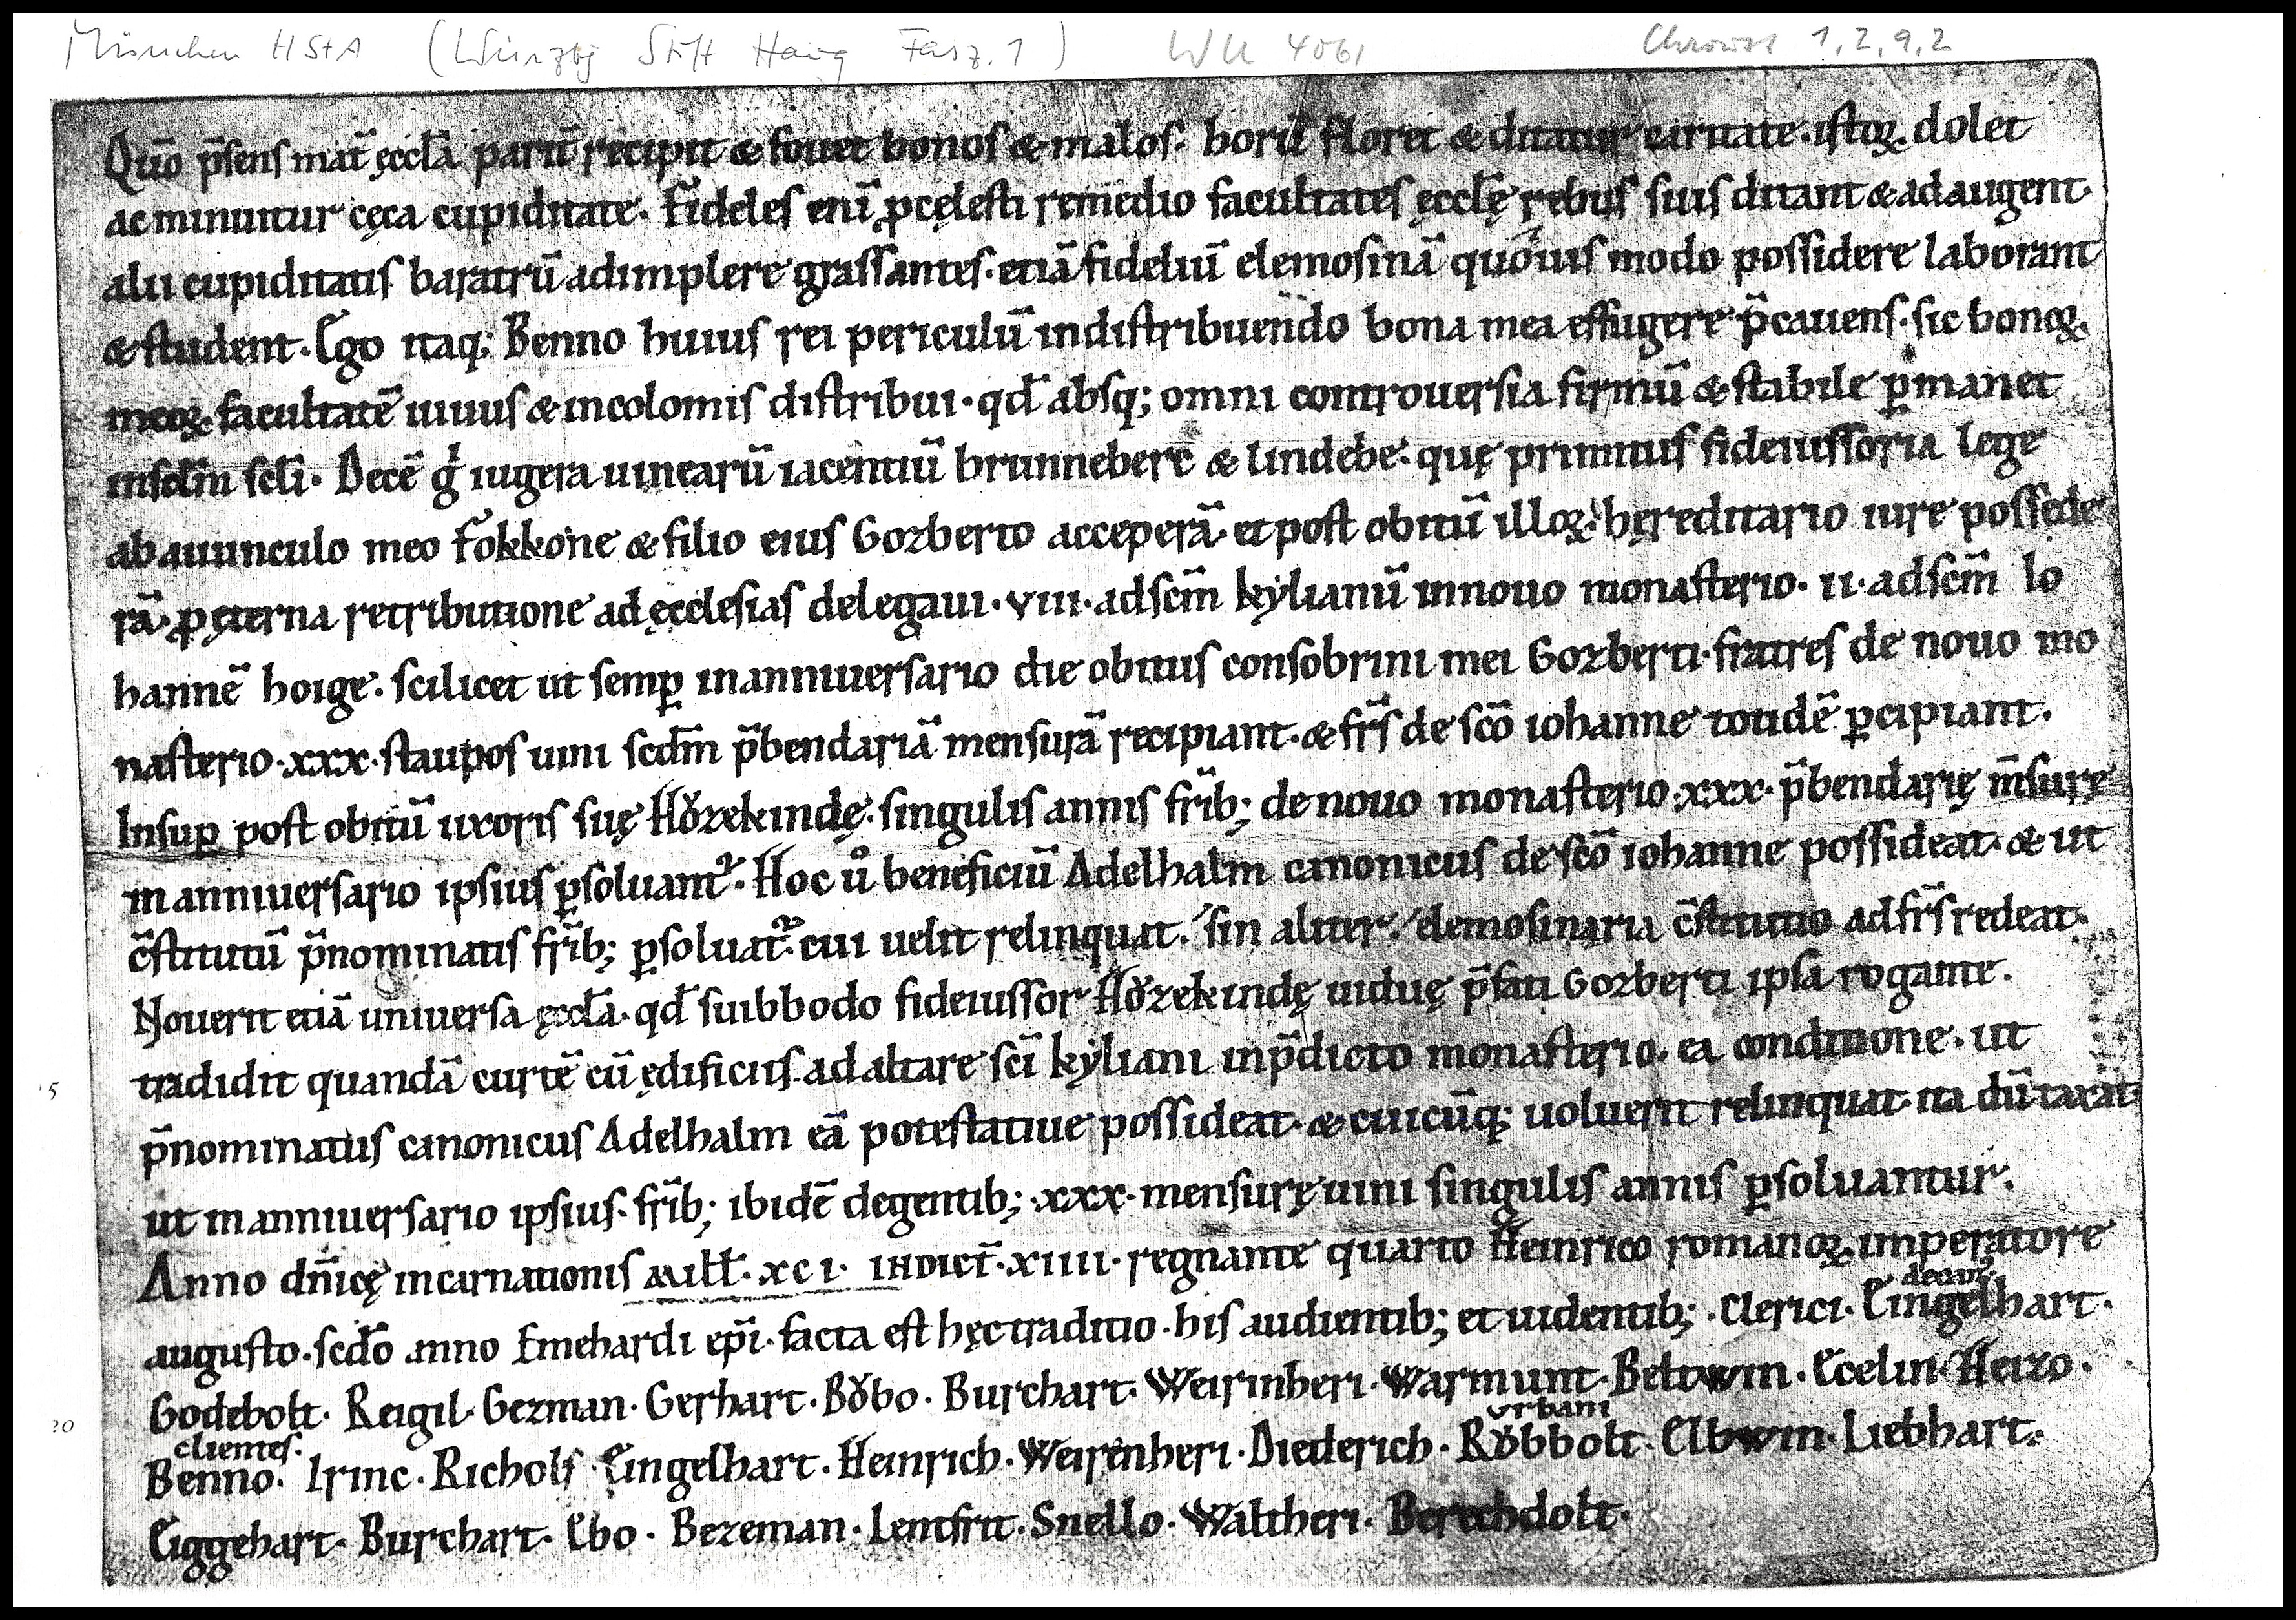 München HStA (Würzbg Stift Haug Fasz. 1) WU 4061 Chroust 1,2,9,2
Quō p̄sens mat̄ ęccl̄a parit̄ recipit & fouet bonos & malos. horū floret & ditatur caritate. istoꝝ dolet
ac minuitur cęca cupiditate. Fideles enī ꝓ cęlesti remedio facultates ęccl̄ę rebus suis ditant & adaugent.
alii cupiditatis baratrū adimplere grassantes. etiā fideliū elemosinā quouis modo possidere laborant
& student. Ego itaq; Benno huius rei periculū in distribuendo bona mea effugere p̄cauens. sic bonoꝝ
meoꝝ facultatē uiuus & incolomis distribui. qd̄ absq; omni controuersia firmū & stabile ꝑmanet
in sclm̄ scl̄i. Decē gͥ iugera uinearū iacentiū brunneberc & lindebe. quę primitus fideiussoria lege
ab auunculo meo Fokkone & filio eius Gozberto acceperā. et post obitū illoꝝ hęreditario iure possede
rā. ꝓ ęterna retributione ad ęcclesias delegaui. VIII. ad scm̄ kylianū in nouo monasterio. II. ad scm̄ Io
hannē hoige. scilicet ut semꝑ in anniuersario die obitus consobrini mei Gozberti. fratres de nouo mo
nasterio. xxx. staupos uini scdm̄ p̄bendariā mensurā recipiant. & frs̄ de sc̄o iohanne totidē ꝑcipiant.
Insuꝑ post obitū uxoris suę Hŏzekindę. singulis annis frīb; de nouo monasterio. xxx. p̄bendarię m̄surę
in anniuersario ipsius ꝑsoluant᷑. Hoc uͦ beneficiū Adelhalm canonicus de sc̄o iohanne possideat. & ut
c̄stitutū p̄nominatis frīb; ꝑsoluat᷑. cui uelit relinquat. sin aliter. elemosinaria c̄stitutio ad frs̄ redeat.
Nouerit etiā uniuersa ęccl̄a. qd̄ suibbodo fideiussor Hŏzekindę uiduę p̄fati Gozberti ipsa rogante.
tradidit quandā curtē cū ędificiis. ad altare sc̄i kyliani in p̄dicto monasterio. ea conditione. ut
p̄nominatus canonicus Adelhalm eā potestatiue possideat. & cuicūq; uoluerit relinquat. ita dūtaxat.
ut in anniuersario ipsius. frīb; ibidē degentib; .xxx. mensurę uini singulis annis ꝑsoluantur.
Anno dn̄icę incarnationis Mill̄. XCI. INDICT̄. XIIII. regnante quarto Heinrico romanoꝝ imperatore
augusto. scdo anno Emehardi ep̄i. facta est hęc traditio. his audientib; et uidentib; . Clerici. Eingelhart.
decan᷒
Godebolt. Reigil. Gezman. Gerhart. Bŏbo. Burchart. Weirinheri. Warmunt. Beltwin. Ecelin. Heizo.
clientes. urbani
Benno. Irinc. Richolf. Eingelhart. Heinrich. Weirenheri. Diederich. Rŏbbolt. Elbwin. Liebhart.
Eiggehart. Burchart. Ebo. Bezeman. Lentfrit. Snello. Waltheri. Berechdolt.
5
20